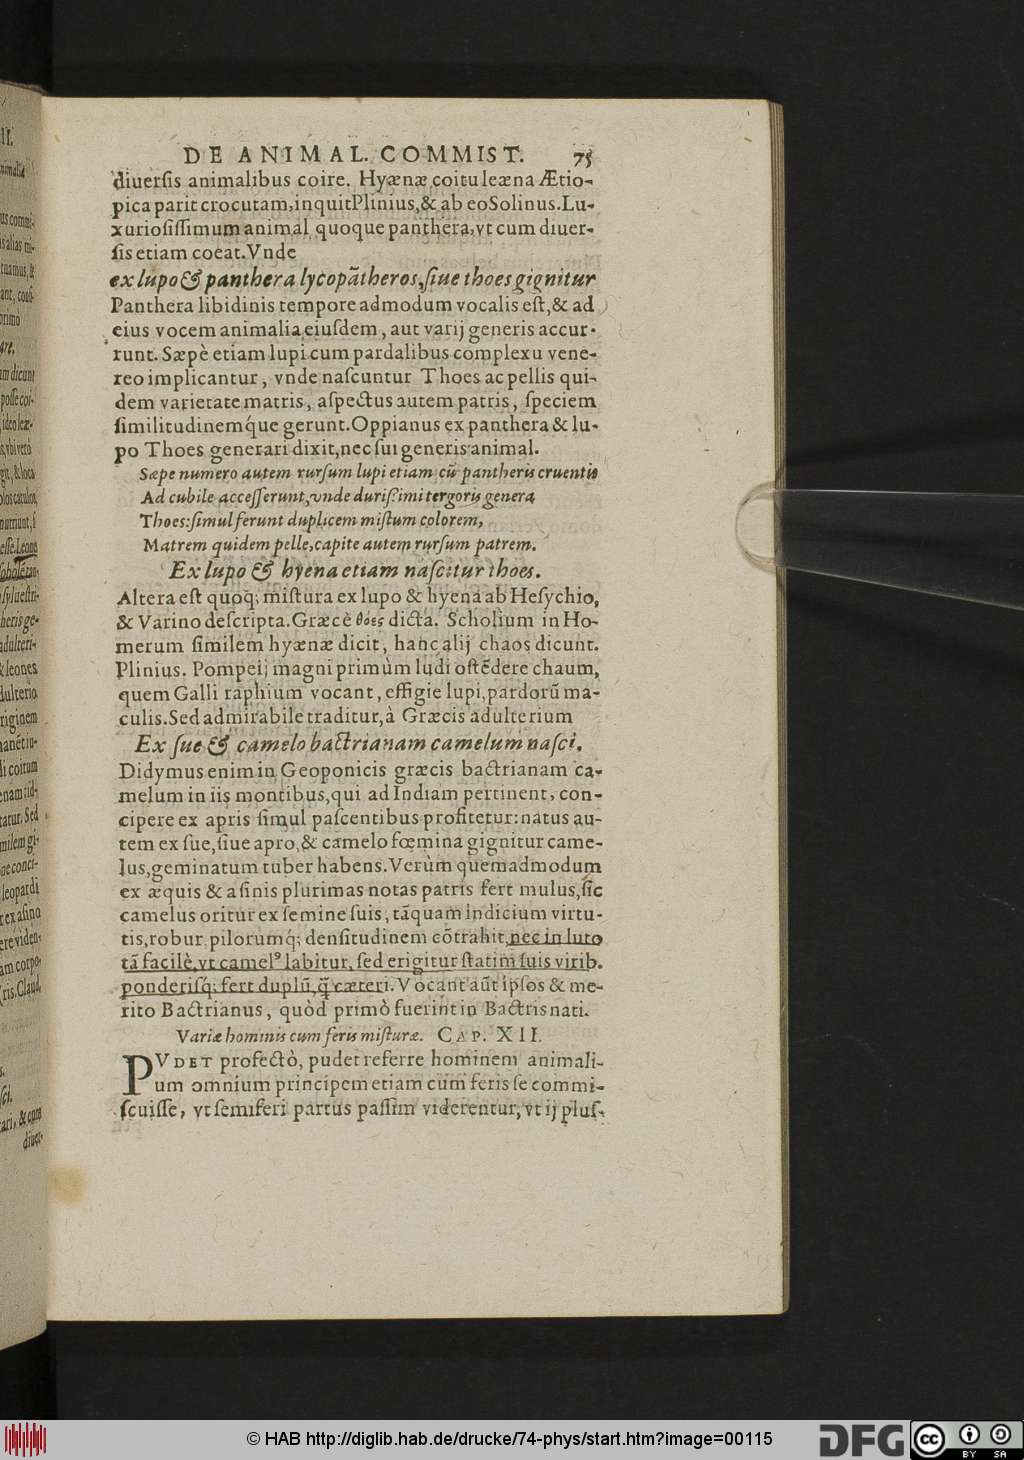 DE ANIMAL. COMMIST. 75
diuersis animalibus coire. Hyænæ coitu leæna Ætio-
pica parit crocutam, inquit Plinius, & ab eo Solinus. Lu-
xuriosissimum animal quoque panthera, vt cum diuer-
sis etiam coeat. Vnde
ex lupo & panthera lycopātheros, siue thoes gignitur
Panthera libidinis tempore admodum vocalis est, & ad
eius vocem animalia eiusdem, aut varij generis accur-
runt. Sæpè etiam lupi cum pardalibus complexu vene-
reo implicantur, vnde nascuntur Thoes ac pellis qui-
dem varietate matris, aspectus autem patris, speciem
similitudinemq́ue gerunt. Oppianus ex panthera & lu-
po Thoes generari dixit, nec sui generis animal.
Sæpe numero autem rursum lupi etiam cū pantheris cruentis
Ad cubile accesserunt, vnde durißimi tergoris genera
Thoes: simul ferunt duplicem mistum colorem,
Matrem quidem pelle, capite autem rursum patrem.
Ex lupo & hyena etiam nascitur thoes.
Altera est quoq; mistura ex lupo & hyena ab Hesychio,
& Varino descripta. Græcè θόες dicta. Scholium in Ho-
merum similem hyænæ dicit, hanc alij chaos dicunt.
Plinius. Pompeij magni primùm ludi ostēdere chaum,
quem Galli raphium vocant, effigie lupi, pardorū ma-
culis. Sed admirabile traditur, à Græcis adulterium
Ex sue & camelo bactrianam camelum nasci.
Didymus enim in Geoponicis græcis bactrianam ca-
melum in iis montibus, qui ad Indiam pertinent, con-
cipere ex apris simul pascentibus profitetur: natus au-
tem ex sue, siue apro, & camelo fœmina gignitur came-
lus, geminatum tuber habens. Verùm quemadmodum
ex æquis & asinis plurimas notas patris fert mulus, sic
camelus oritur ex semine suis, tāquam indicium virtu-
tis, robur pilorumq́; densitudinem cōtrahit, nec in luto
tā facilè, vt camelꝰ labitur, sed erigitur statim suis virib.
ponderisq́; fert duplū, q̄ cæteri. Vocant aūt ipsos & me-
rito Bactrianus, quòd primò fuerint in Bactris nati.
Variæ hominis cum feris misturæ. CAP. XII.
PVDET profectò, pudet referre hominem animali-
um omnium principem etiam cum feris se commi-
scuisse, vt semiferi partus passim viderentur, vt ij plus-
© HAB http://diglib.hab.de/drucke/74-phys/start.htm?image=00115
DFG
cc
BY SA